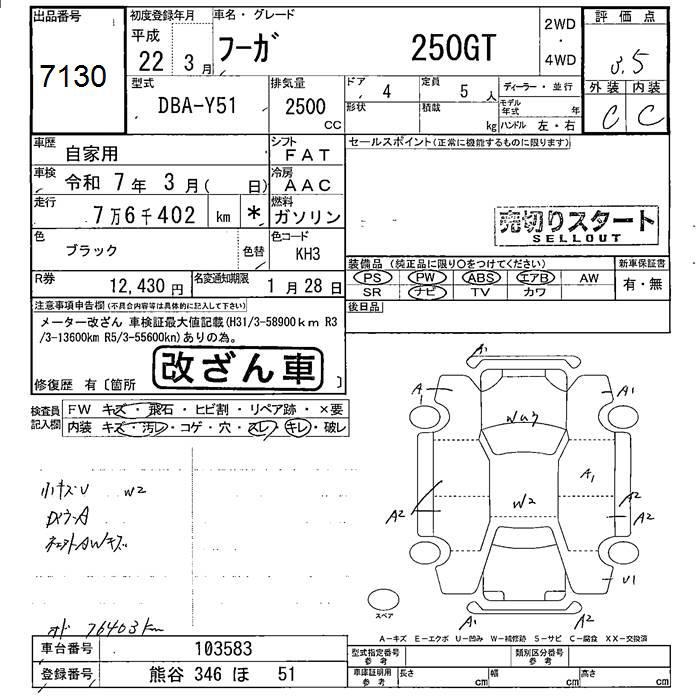 出品番号
7130
初度登録年月
平成
22 3 月
車名・グレード
フーガ 250GT
2WD
・
4WD
評価点
3.5
外装 内装
C C
型式
DBA-Y51
排気量
2500
CC
ドア
4
定員
5 人
形状
積載
kg
ディーラー・並行
モデル年式 年
ハンドル 左・右
車歴
自家用
シフト
FAT
車検
令和 7 年 3 月( 日)
冷房
AAC
走行
7万6千402 km *
燃料
ガソリン
色
ブラック
色替
色コード
KH3
R券
12,430 円
名変通知期限
1 月 28 日
セールスポイント(正常に機能するものに限ります)
売切りスタート
SELLOUT
装備品(純正品に限り○をつけてください)
PS PW ABS エアB AW
SR ナビ TV カワ
新車保証書
有・無
後日品
注意事項申告欄(不具合内容等は具体的に記入して下さい)
メーター改ざん 車検証最大値記載(H31/3-58900km R3
/3-13600km R5/3-55600kn)ありの為。
改ざん車
修復歴 有〔箇所 〕
検査員
記入欄
FW キズ・飛石・ヒビ割・リペア跡・×要
内装 キズ・汚レ・コゲ・穴・スレ・キレ・破レ
小キズU W2
オド 76403km
A1
A A1
W2
A1
A2 A2
A2
U1
A1 A2
スペア
A-キズ E-エクボ U-凹み W-補修跡 S-サビ C-腐食 XX-交換済
車台番号 103583
登録番号 熊谷 346 ほ 51
型式指定番号
参考
類別区分番号
参考
車庫証明用
参考
長さ cm 幅 cm 高さ cm